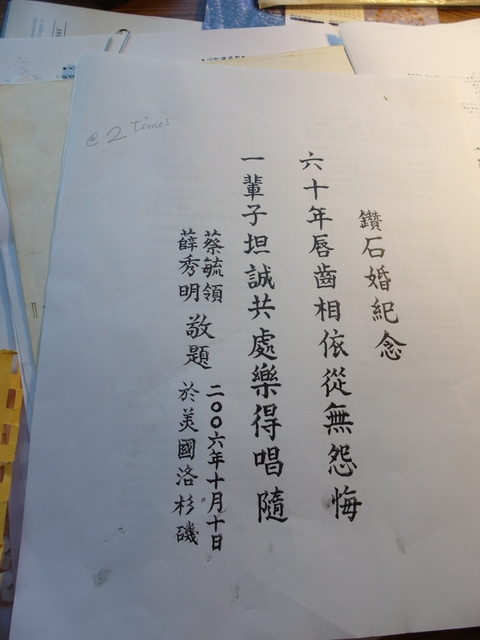 @ 2 times
鑽石婚紀念
六十年唇齒相依從無怨悔
一輩子坦誠共處樂得唱隨
蔡毓領
薛秀明
敬題
二〇〇六年十月十日
於美國洛杉磯